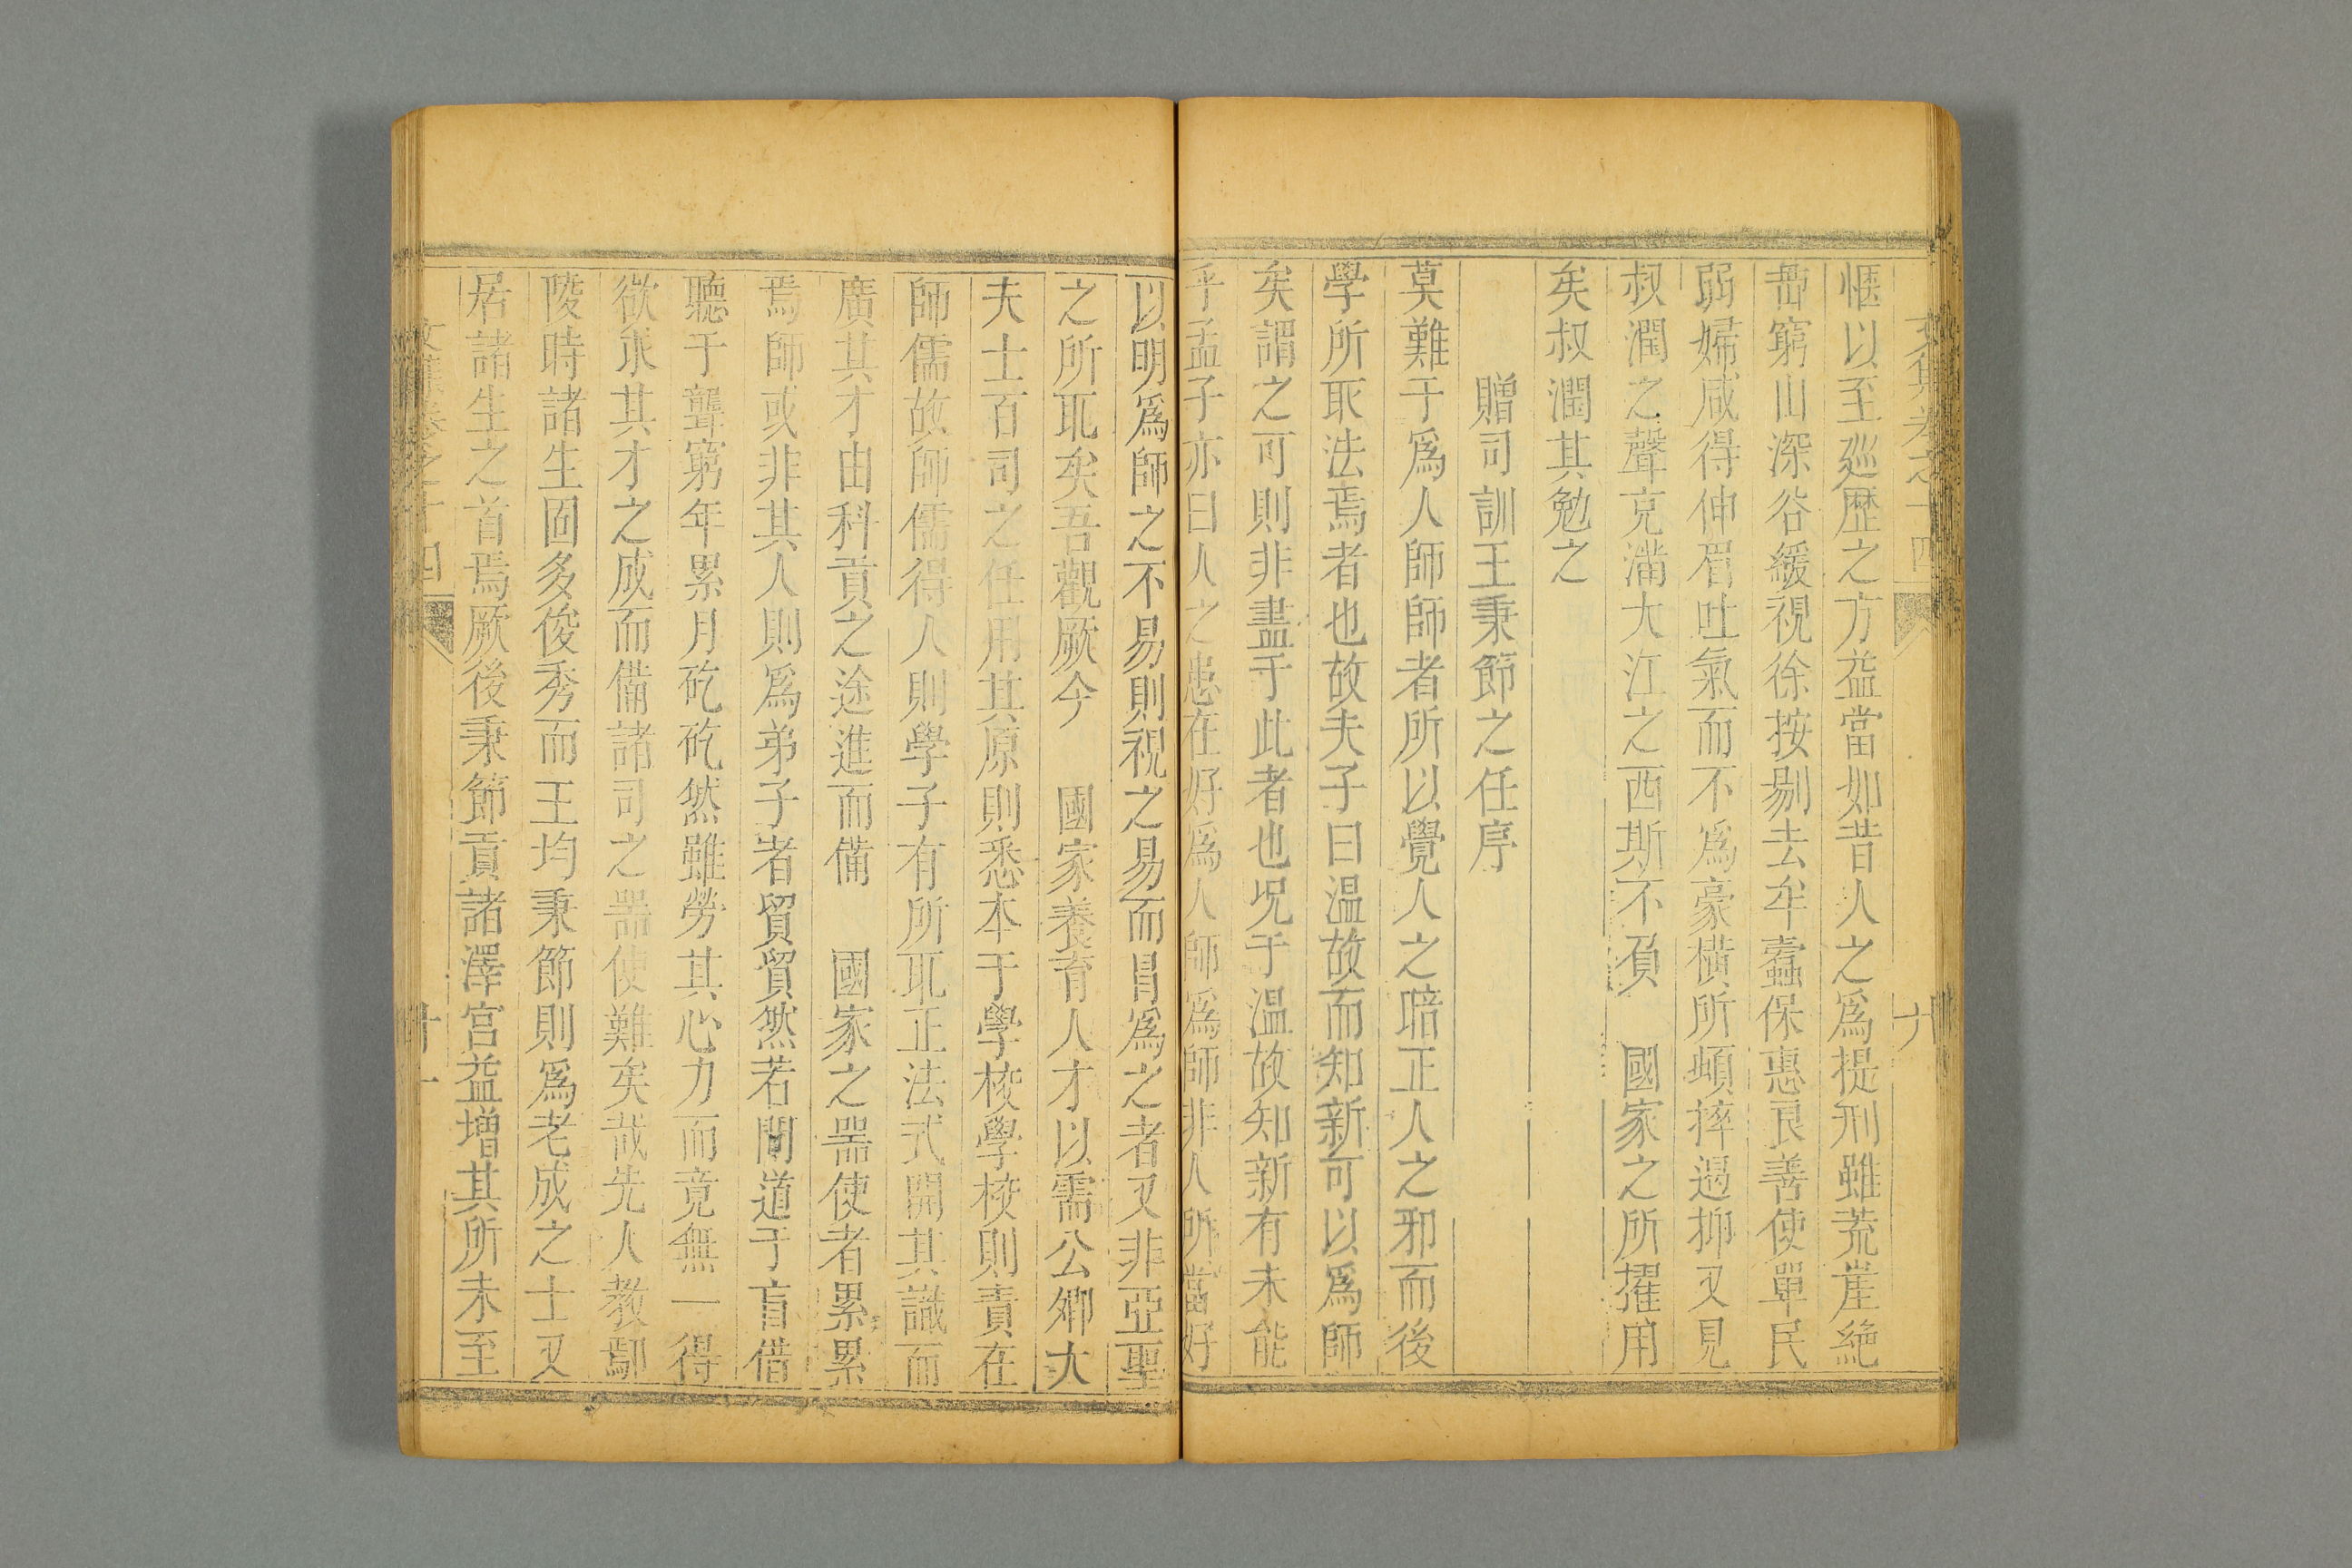 文集卷之十四
九
愜以至廵歷之方益當如昔人之爲提刑雖荒崖絶
嶴窮山深谷緩視徐按剔去牟蠧保惠良善使單民
弱婦咸得伸眉吐氣而不爲豪橫所頔摔遏抑又見
叔潤之聲克滿大江之西斯不負　國家之所擢用
矣叔潤其勉之
贈司訓王秉節之任序
莫難于爲人師師者所以覺人之暗正人之邪而後
學所取法焉者也故夫子曰溫故而知新可以爲師
矣謂之可則非盡于此者也况于溫故知新有未能
乎孟子亦曰人之患在好爲人師爲師非人所當好
以明爲師之不易則視之易而冐爲之者又非亞聖
之所取矣吾觀厥今　國家養育人才以需公卿大
夫士百司之任用其原則悉本于學校學校則責在
師儒故師儒得人則學子有所取正法式開其識而
廣其才由科貢之途進而備　國家之器使者累累
焉師或非其人則爲弟子者貿貿然若問道于盲借
聽于聾窮年累月矻矻然雖勞其心力而竟無一得
欲求其才之成而備諸司之器使難矣哉先人教鄢
陵時諸生固多俊秀而王均秉節則爲老成之士又
居諸生之首焉厥後秉節貢諸澤宫益增其所未至
文集卷之十四
十